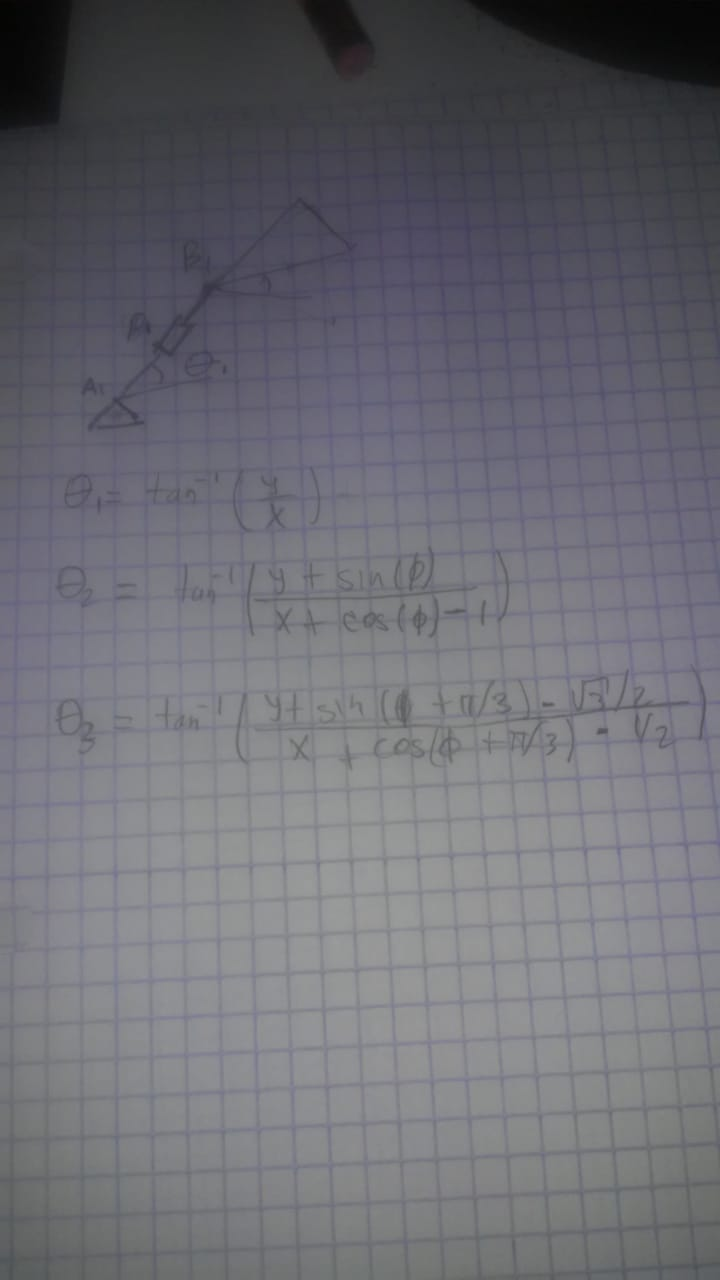 B₁
P₁
θ₁
A₁
θ₁ = tan⁻¹(y/x)
θ₂ = tan⁻¹((y + sin(ϕ))/(x + cos(ϕ) - 1))
θ₃ = tan⁻¹((y + sin(ϕ + π/3) - √3/2)/(x + cos(ϕ + π/3) - 1/2))